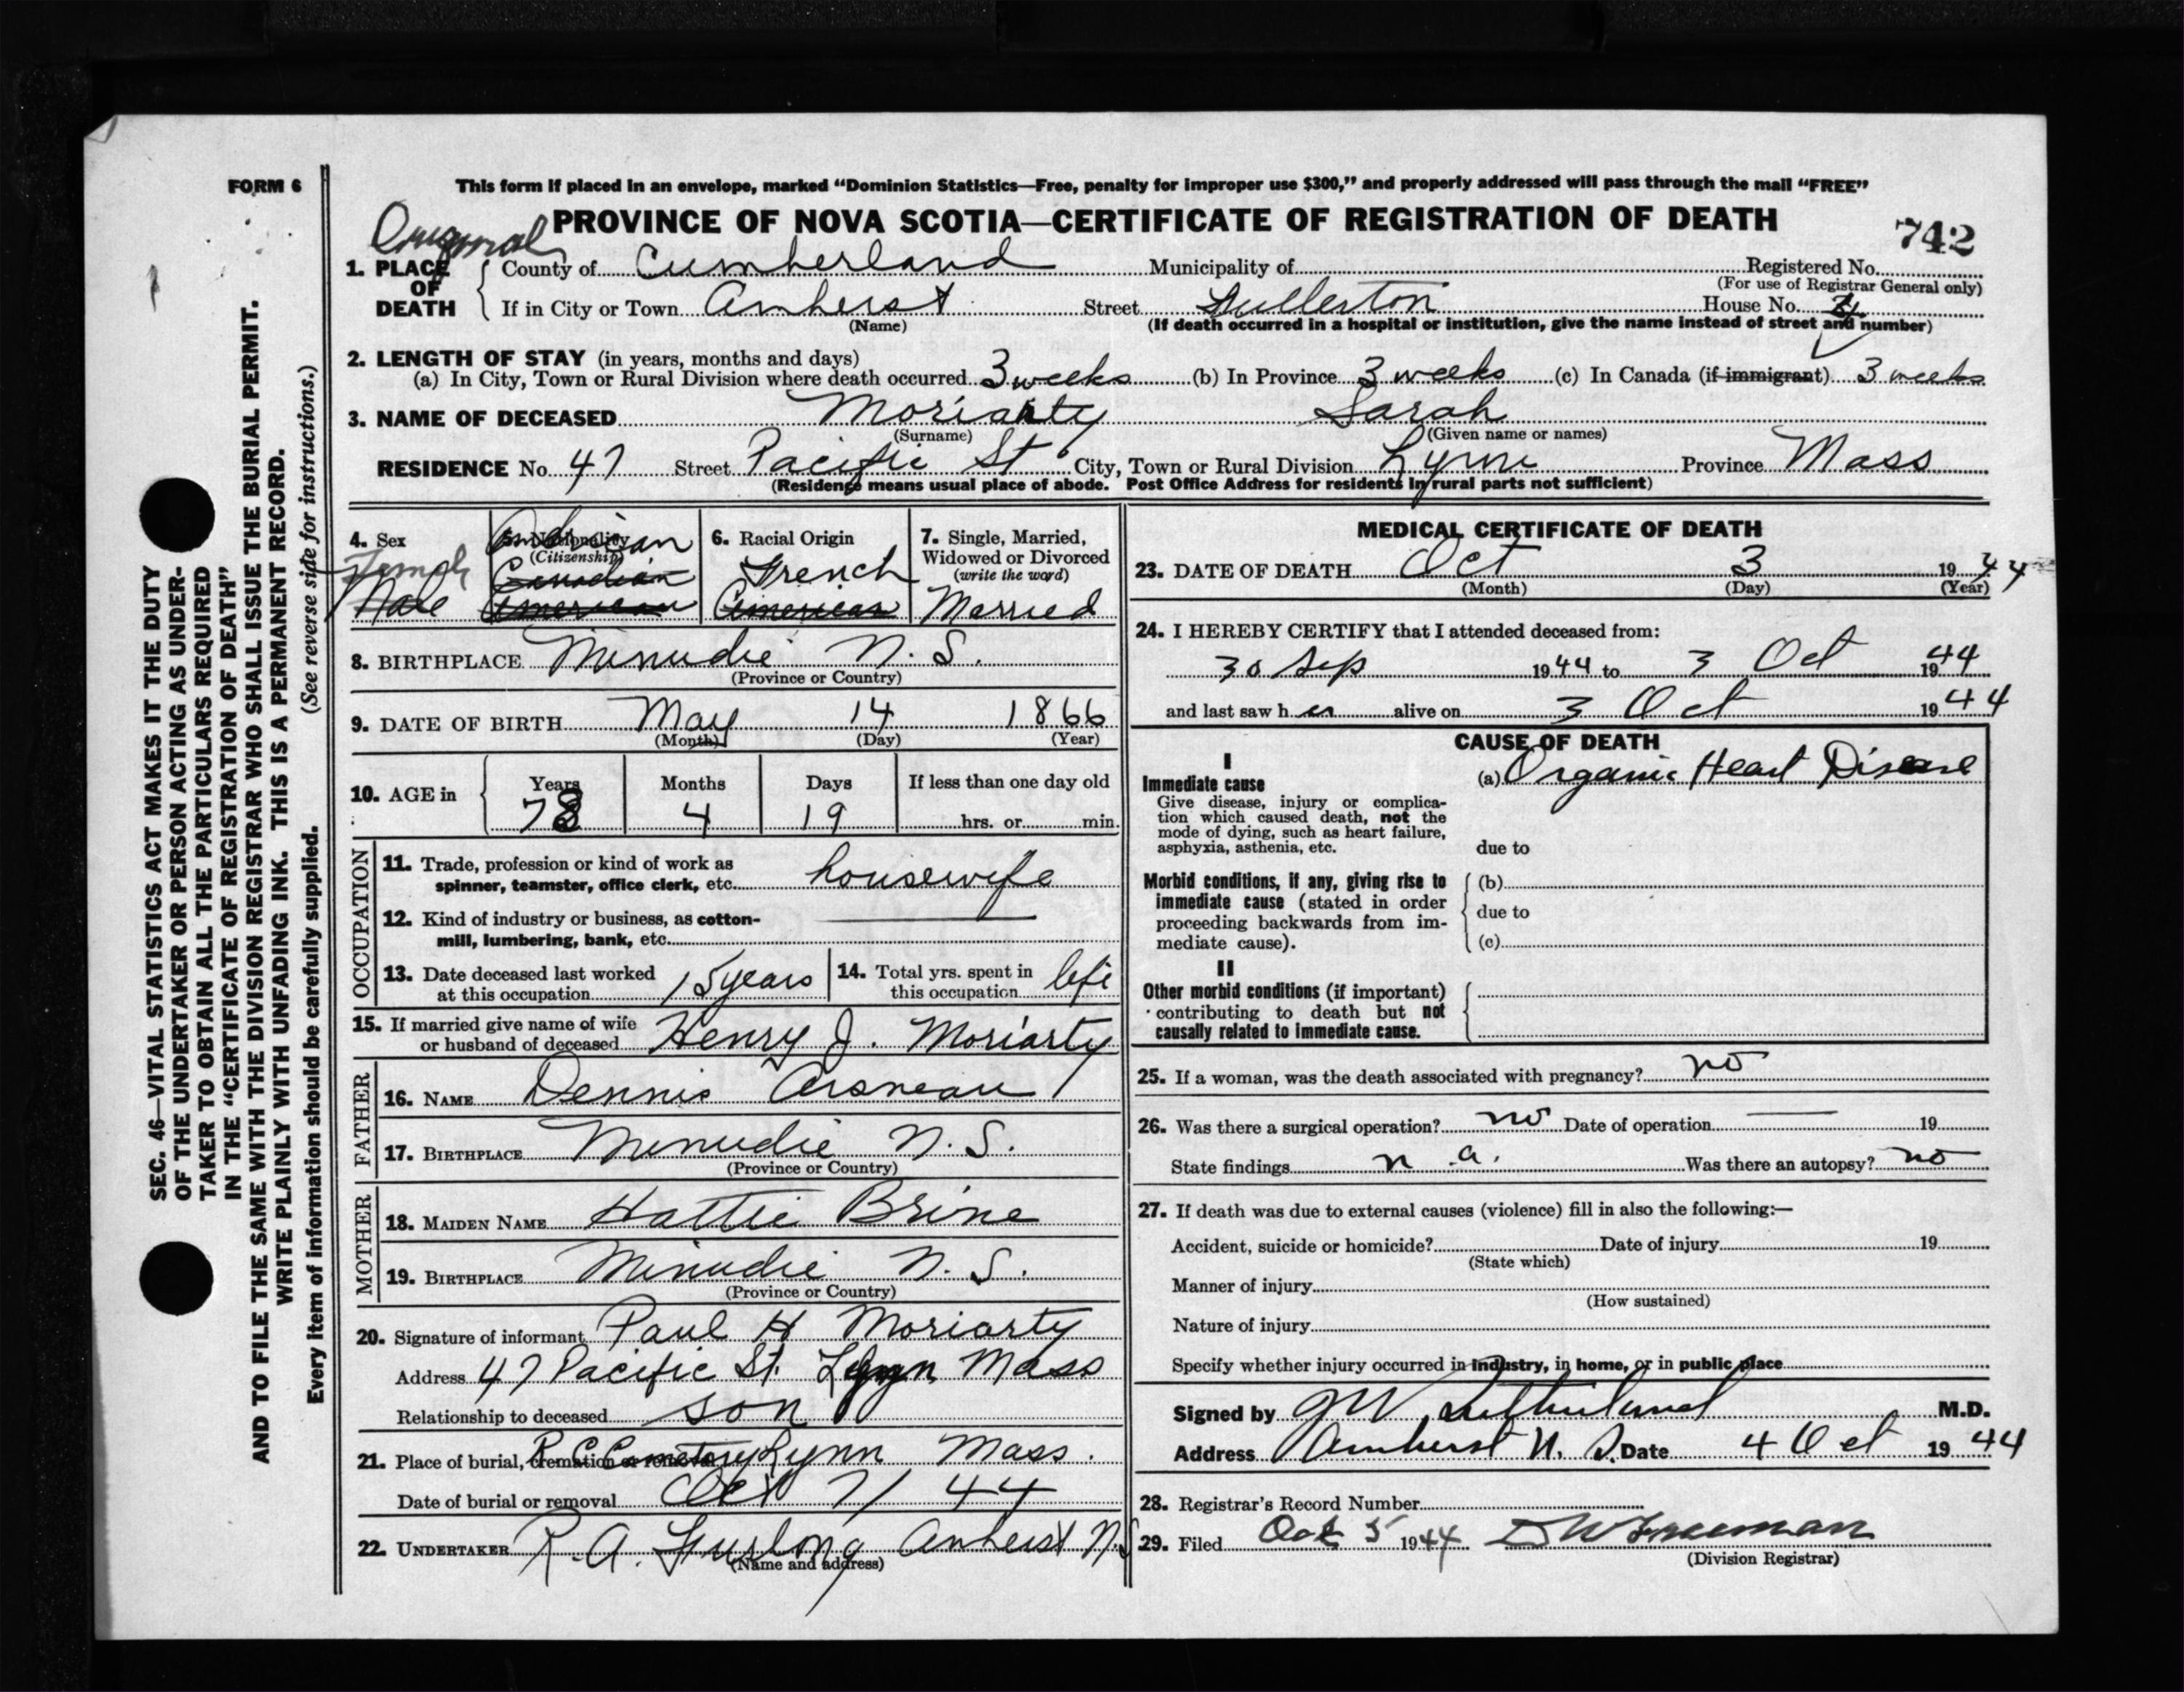 FORM 6
This form if placed in an envelope, marked “Dominion Statistics—Free, penalty for improper use $300,” and properly addressed will pass through the mail “FREE”
Original
PROVINCE OF NOVA SCOTIA—CERTIFICATE OF REGISTRATION OF DEATH
742
1. PLACE OF DEATH
County of Cumberland Municipality of Registered No.
(For use of Registrar General only)
If in City or Town Amherst Street Fullerton House No.
(Name) (If death occurred in a hospital or institution, give the name instead of street and number)
2. LENGTH OF STAY (in years, months and days)
(a) In City, Town or Rural Division where death occurred 3 weeks (b) In Province 3 weeks (c) In Canada (if immigrant) 3 weeks
3. NAME OF DECEASED Moriarty Sarah
(Surname) (Given name or names)
RESIDENCE No. 47 Street Pacific St City, Town or Rural Division Lynn Province Mass
(Residence means usual place of abode. Post Office Address for residents in rural parts not sufficient)
4. Sex
Female
Male
5. Nationality
(Citizenship)
Canadian
American
6. Racial Origin
French
American
7. Single, Married,
Widowed or Divorced
(write the word)
Married
8. BIRTHPLACE Minudie N. S.
(Province or Country)
9. DATE OF BIRTH May 14 1866
(Month) (Day) (Year)
10. AGE in
Years Months Days If less than one day old
78 4 19 hrs. or min.
OCCUPATION
11. Trade, profession or kind of work as
spinner, teamster, office clerk, etc. housewife
12. Kind of industry or business, as cotton-
mill, lumbering, bank, etc.
13. Date deceased last worked
at this occupation 15 years
14. Total yrs. spent in
this occupation life
15. If married give name of wife
or husband of deceased Henry J. Moriarty
FATHER
16. NAME Dennis Arsneau
17. BIRTHPLACE Minudie N. S.
(Province or Country)
MOTHER
18. MAIDEN NAME Hattie Brine
19. BIRTHPLACE Minudie N. S.
(Province or Country)
20. Signature of informant Paul H Moriarty
Address 47 Pacific St. Lynn Mass
Relationship to deceased son
21. Place of burial, cremation or removal R. C. Cemetery Lynn Mass.
Date of burial or removal Oct 7/ 44
22. UNDERTAKER R. A. Furlong Amherst N. S.
(Name and address)
MEDICAL CERTIFICATE OF DEATH
23. DATE OF DEATH Oct 3 1944
(Month) (Day) (Year)
24. I HEREBY CERTIFY that I attended deceased from:
30 Sep 1944 to 3 Oct 1944
and last saw her alive on 3 Oct 1944
CAUSE OF DEATH
I
Immediate cause
Give disease, injury or complica-
tion which caused death, not the
mode of dying, such as heart failure,
asphyxia, asthenia, etc.
(a) Organic Heart Disease
due to
Morbid conditions, if any, giving rise to
immediate cause (stated in order
proceeding backwards from im-
mediate cause).
(b)
due to
(c)
II
Other morbid conditions (if important)
contributing to death but not
causally related to immediate cause.
25. If a woman, was the death associated with pregnancy? no
26. Was there a surgical operation? no Date of operation 19
State findings n.a. Was there an autopsy? no
27. If death was due to external causes (violence) fill in also the following:—
Accident, suicide or homicide? Date of injury 19
(State which)
Manner of injury
(How sustained)
Nature of injury
Specify whether injury occurred in industry, in home, or in public place
Signed by J W Sutherland M.D.
Address Amherst N. S. Date 4 Oct 1944
28. Registrar's Record Number
29. Filed Oct 5 1944 D W Freeman
(Division Registrar)
SEC. 46—VITAL STATISTICS ACT MAKES IT THE DUTY
OF THE UNDERTAKER OR PERSON ACTING AS UNDER-
TAKER TO OBTAIN ALL THE PARTICULARS REQUIRED
IN THE “CERTIFICATE OF REGISTRATION OF DEATH”
AND TO FILE THE SAME WITH THE DIVISION REGISTRAR WHO SHALL ISSUE THE BURIAL PERMIT.
WRITE PLAINLY WITH UNFADING INK. THIS IS A PERMANENT RECORD.
Every item of information should be carefully supplied. (See reverse side for instructions.)